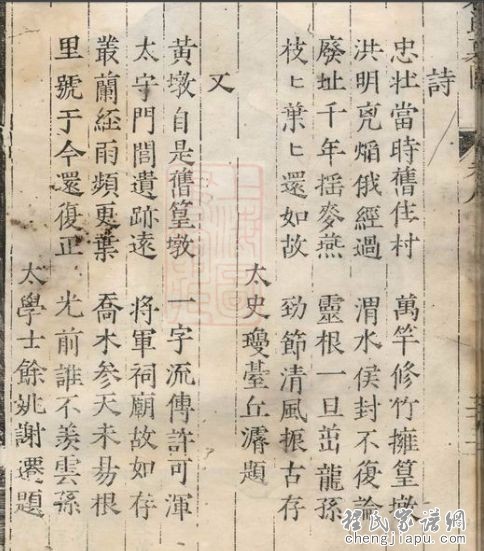 詩
忠壯當時舊住村 萬竿修竹擁篁墩
洪明兇焰俄經過 渭水侯封不復論
廢址千年揺麥燕 靈根一旦茁龍孫
枝〻葉〻還如故 勁節清風振古存
太史瓊臺丘濬題
又
黃墩自是舊篁墩 一字流傳許可渾
太守門閭遺跡遠 將軍祠廟故如存
叢蘭經雨頻更葉 喬木參天未易根
里號于今還復正 光前誰不羨雲孫
太學士餘姚謝遷題
程氏家谱網
chengjiapu.com